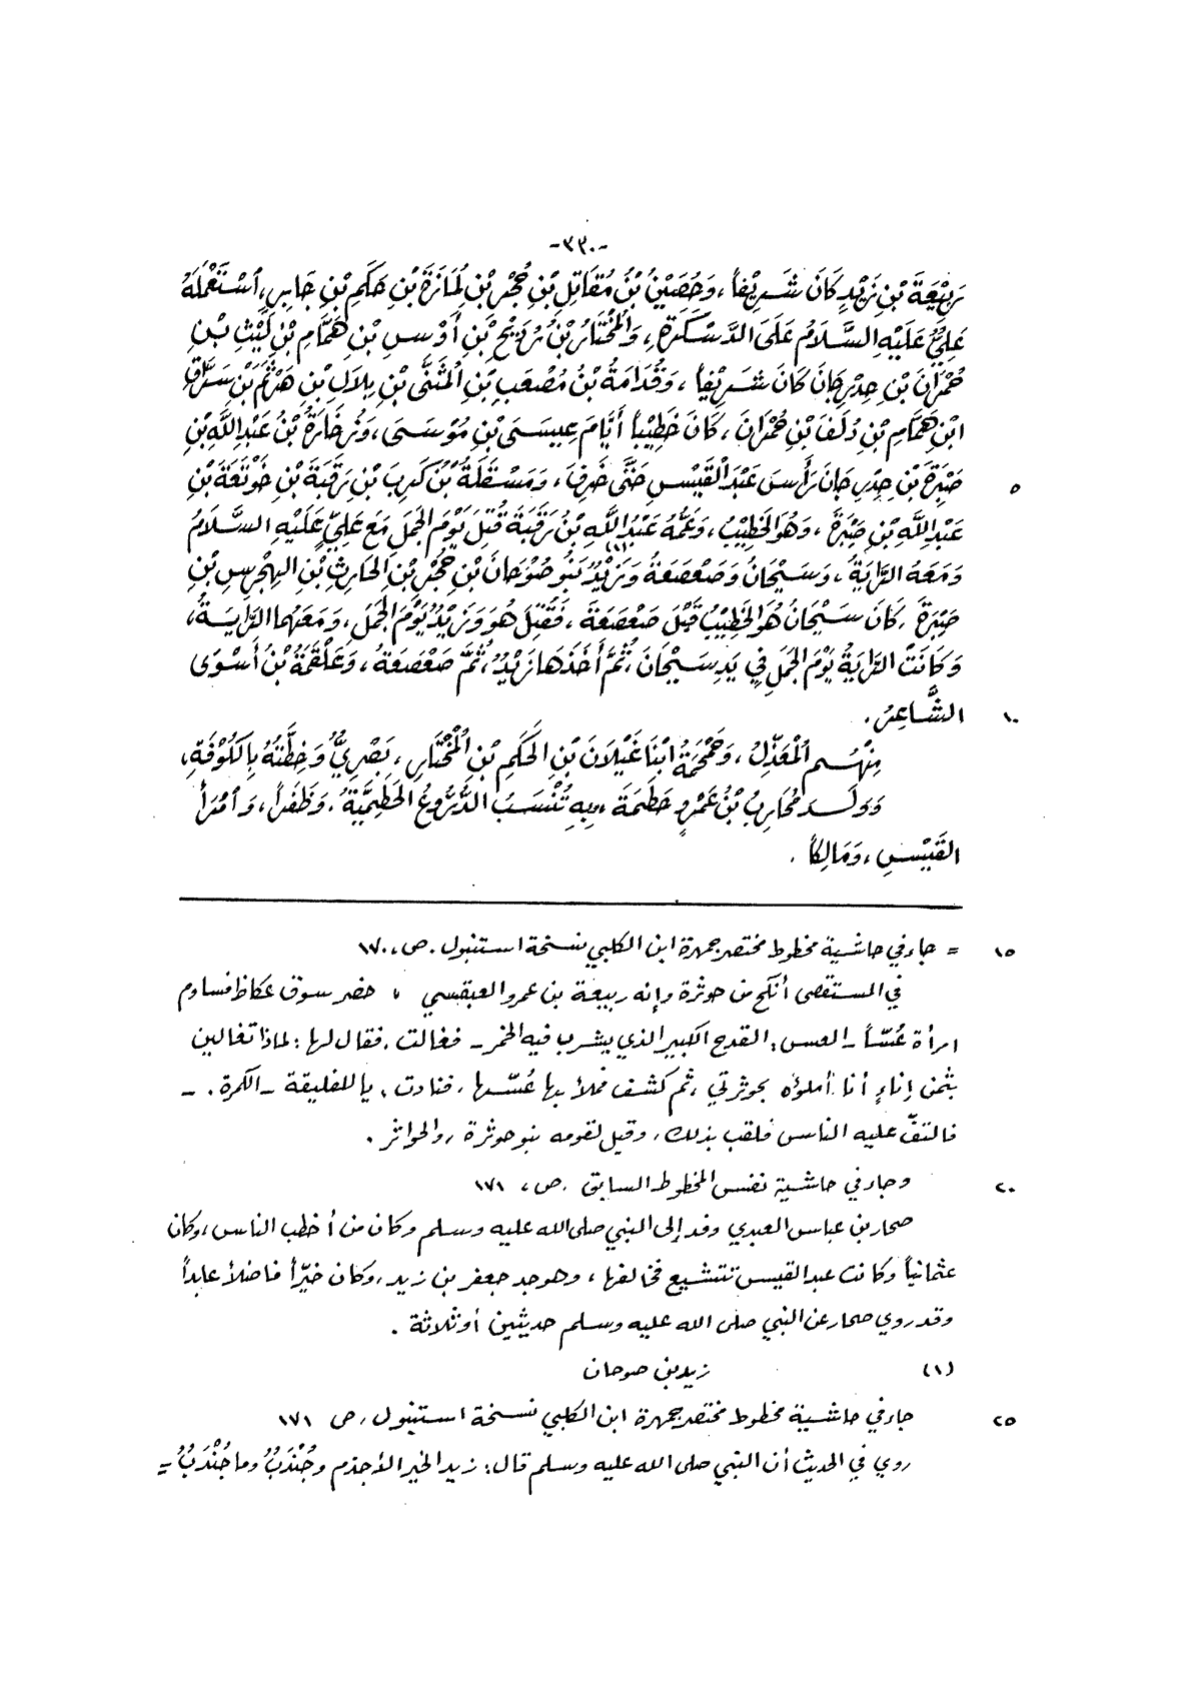 -٣٣٠-
رَبِيْعَةَ بْنِ زَيْدٍ كَانَ شَرِيْفاً، وَحُصَيْنُ بْنُ مُقَاتِلِ بْنِ حُجْرِ بْنِ لُمَازَةَ بْنِ حَكَمِ بْنِ جَابِرٍ، اسْتَعْمَلَهُ
عَلِيٌّ عَلَيْهِ السَّلَامُ عَلَى الدَّسْكَرَةِ، وَالمُخْتَارُ بْنُ رُدَيْحِ بْنِ أَوْسِ بْنِ هَمَّامِ بْنِ لَيْثِ بْنِ
حُمْرَانَ بْنِ حِدْرِجَانَ كَانَ شَرِيْفاً، وَقُدَامَةُ بْنُ مُصْعَبِ بْنِ المُثَنَّى بْنِ بِلَالِ بْنِ هَرْثَمَ بْنِ سَرَّاقِ
ابْنِ هَمَّامِ بْنِ دُلَفَ بْنِ حُمْرَانَ، كَانَ خَطِيْباً أَيَّامَ عِيسَى بْنِ مُوْسَى، وَزُخَارَةُ بْنُ عَبْدِ اللَّهِ بْنِ
٥ صَبْرَةَ بْنِ حِدْرِجَانَ رَأَسَ عَبْدَ القَيْسِ حَتَّى خَرِفَ، وَمَسْقَلَةُ بْنُ كَرِبَ بْنِ رَقَبَةَ بْنِ خَوْتَعَةَ بْنِ
عَبْدِ اللَّهِ بْنِ صَبْرَةَ، وَهُوَ الخَطِيْبُ، وَعَمُّهُ عَبْدُ اللَّهِ بْنُ رَقَبَةَ قُتِلَ يَوْمَ الجَمَلِ مَعَ عَلِيٍّ عَلَيْهِ السَّلَامُ
وَمَعَهُ الرَّايَةُ، وَسَيْحَانُ وَصَعْصَعَةُ وَزَيْدٌ (١) بَنُو صُوْحَانَ بْنِ حُجْرِ بْنِ الحَارِثِ بْنِ الهِجْرِسِ بْنِ
صَبْرَةَ، كَانَ سَيْحَانُ هُوَ الخَطِيْبُ قَبْلَ صَعْصَعَةَ، فَقُتِلَ هُوَ وَزَيْدٌ يَوْمَ الجَمَلِ، وَمَعَهُما الرَّايَةُ،
وَكَانَتْ الرَّايَةُ يَوْمَ الجَمَلِ فِي يَدِ سَيْحَانَ، ثُمَّ أَخَذَهَا زَيْدٌ، ثُمَّ صَعْصَعَةُ، وَعَلْقَمَةُ بْنُ أَسْوَى
١٠ الشَّاعِرُ.
مِنْهُم المُعَذَّلُ، وَحَمْحَمَةُ ابْنَا غَيْلَانَ بْنِ الحَكَمِ بْنِ المُخْتَارِ، بَصْرِيٌّ وَخِطَّتُهُ بِالكُوْفَةِ،
وَوَلَدَ مُحَارِبُ بْنُ عَمْرٍو حَطَمَةَ، بِهِ تُنْسَبُ الدُّرُوعُ الحَطَمِيَّةُ، وَظَفَراً، وَامْرَأَ
القَيْسِ، وَمَالِكاً.
١٥ = جاء في حاشية مخطوط مختصر جمهرة ابن الكلبي نسخة استنبول. ص، ١٧٠
في المستقصى أنكح من حوثرة وإنه ربيعة بن عمرو العبقسي، حضر سوق عكاظ فساوم
امرأة عُسّاً -العس: القدح الكبير الذي يشرب فيه الخمر- فغالت، فقال لها: لماذا تغالين
بثمن إناءٍ أنا أملؤه بحوثرتي، ثم كشف فملأ بها عُسّها، فنادت، يا للفليقة -الكمرة. -
فالتفّ عليه الناس فلقب بذلك، وقيل لقومه بنو حوثرة، والحواثر.
٢٠ وجاء في حاشية نفس المخطوط السابق. ص، ١٧١
صحار بن عباس العبدي وفد إلى النبي صلى الله عليه وسلم وكان من أخطب الناس، وكان
عثمانياً وكانت عبد القيس تتشيع فخالفها، وهو جد جعفر بن زيد، وكان خيّراً فاضلاً عابداً
وقد روي صحار عن النبي صلى الله عليه وسلم حديثين أو ثلاثة.
(١) زيد بن صوحان
٢٥ جاء في حاشية مخطوط مختصر جمهرة ابن الكلبي نسخة استنبول، ص ١٧١
روي في الحديث أن النبي صلى الله عليه وسلم قال: زيد الخير الأجذم وجُنْدَبٌ وما جُنْدَبٌ =